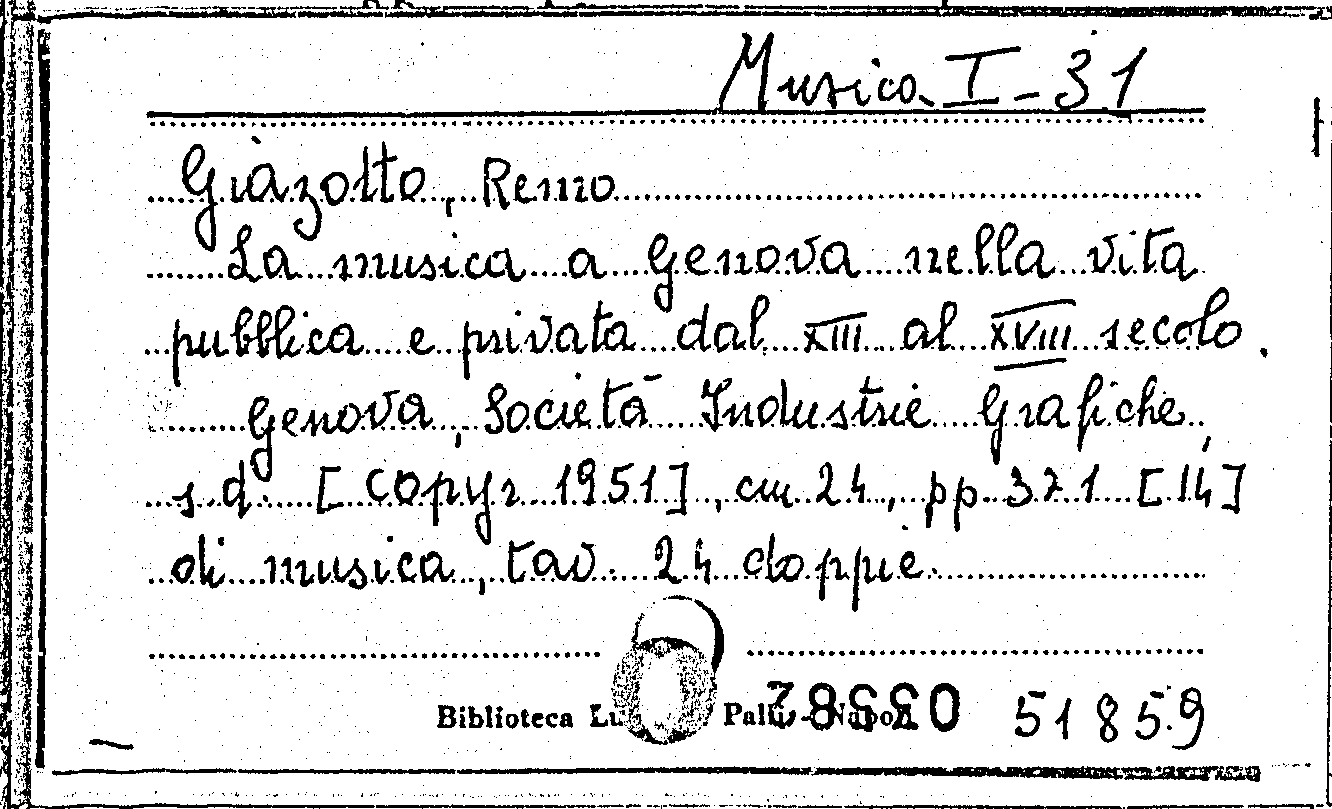 Musica I-31
Giazotto, Remo
La musica a Genova nella vita
pubblica e privata dal XIII al XVIII secolo.
Genova, Società Industrie Grafiche,
s.d. [copyr 1951], cm 24, pp. 371 [14]
di musica, tav. 24 doppie.
Biblioteca 51859